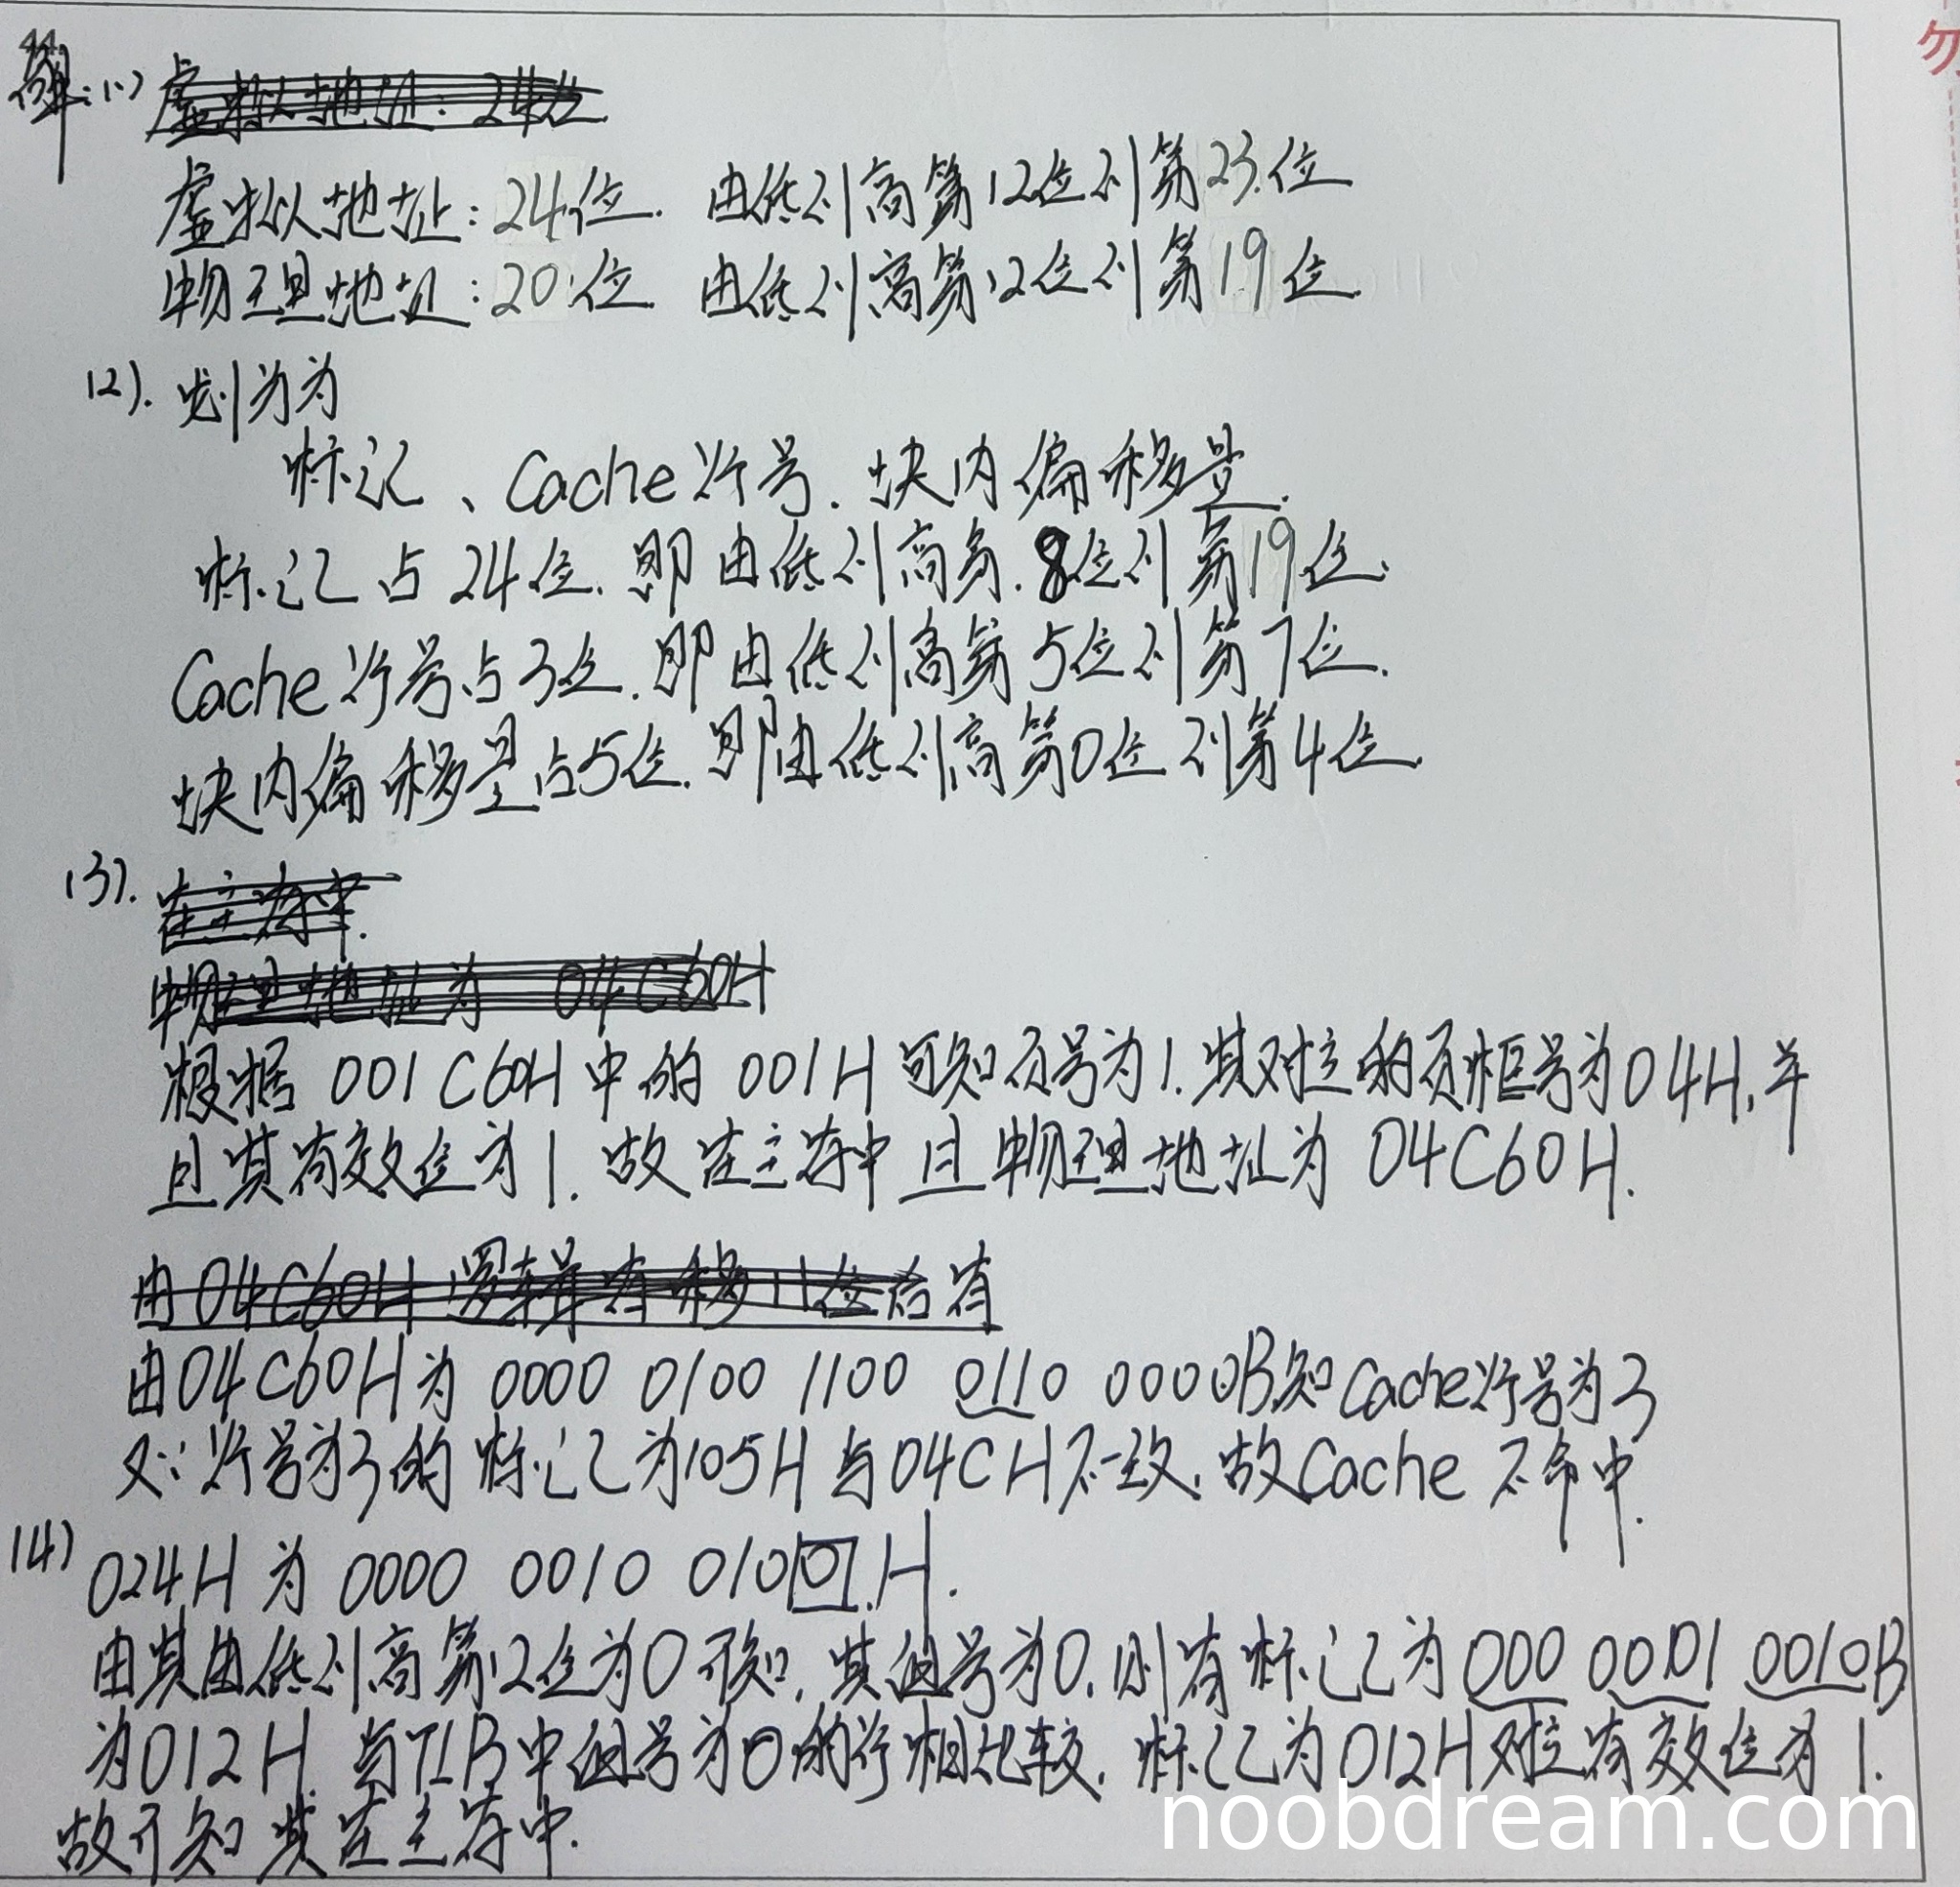 44.
解:(1)
虚拟地址: 24位. 由低到高第12位到第23位
物理地址: 20位 由低到高第12位到第19位.
(2). 划分为
标记、Cache行号. 块内偏移量.
标记占24位. 即由低到高第8位到第19位.
Cache行号占3位. 即由低到高第5位到第7位.
块内偏移量占5位. 即由低到高第0位到第4位.
(3). 在主存中.
物理地址为 04C60H
根据 001C60H中的 001H 可知页号为1. 其对应的页框号为04H, 并
且其有效位为1. 故在主存中且物理地址为 04C60H.
由04C60H逻辑右移11位后有
由04C60H为 0000 0100 1100 0110 0000B知Cache行号为3
又∵行号为3的标记为105H与04CH不一致. 故Cache 不命中.
(4) 024H为 0000 0010 0100.H.
由其由低到高第12位为0可知. 其组号为0. 则有标记为000 0001 0010B
为012H. 与TLB中组号为0的行相比较. 标记为012H对应有效位为1.
故可知其在主存中.
noobdream.com
勿